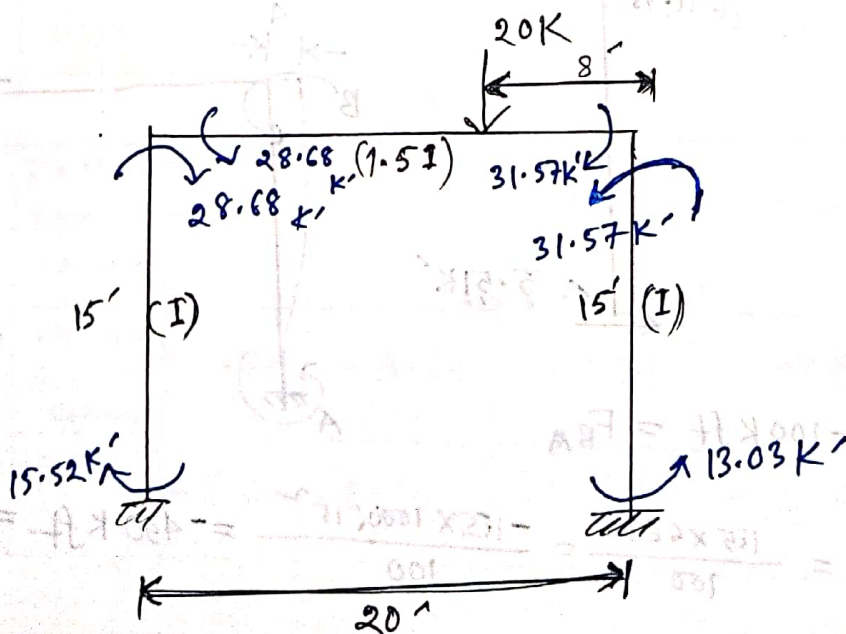 20K
8'
28.68 K' (1.5I)
31.57K'
28.68 K'
31.57 K'
15' (I)
15' (I)
15.52K'
13.03 K'
20'